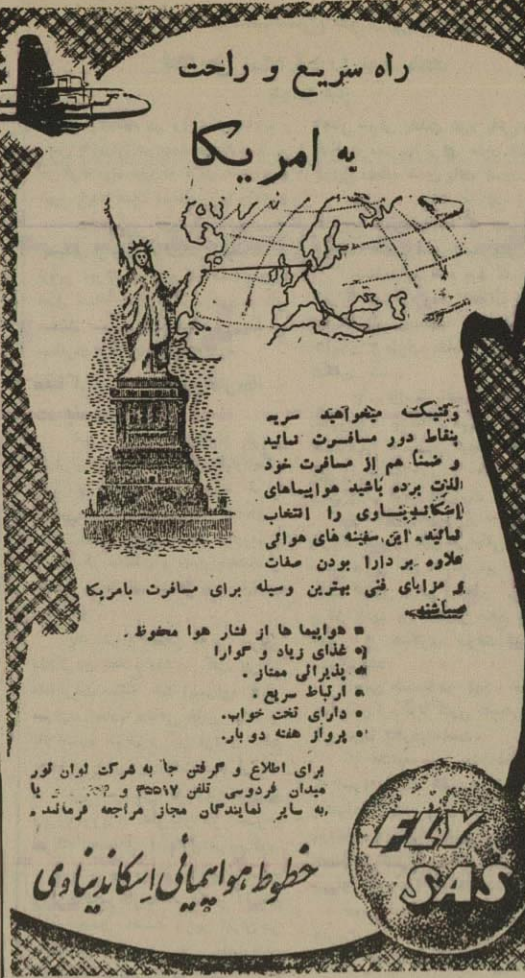 راه سریع و راحت
به امریکا
وقتیکه میخواهید سریع
بنقاط دور مسافرت نمائید
و ضمناً هم از مسافرت خود
لذت برده باشید هواپیماهای
اسکاندیناوی را انتخاب
نمائید. این سفینه های هوائی
علاوه بر دارا بودن صفات
و مزایای فنی بهترین وسیله برای مسافرت بامریکا
میباشند.
هواپیما ها از فشار هوا محفوظ.
غذای زیاد و گوارا
پذیرائی ممتاز.
ارتباط سریع.
دارای تخت خواب.
پرواز هفته دو بار.
برای اطلاع و گرفتن جا به شرکت لوان تور
میدان فردوسی تلفن ۳۵۵۱۷ و یا
به سایر نمایندگان مجاز مراجعه فرمائید.
FLY
SAS
خطوط هواپیمائی اسکاندیناوی